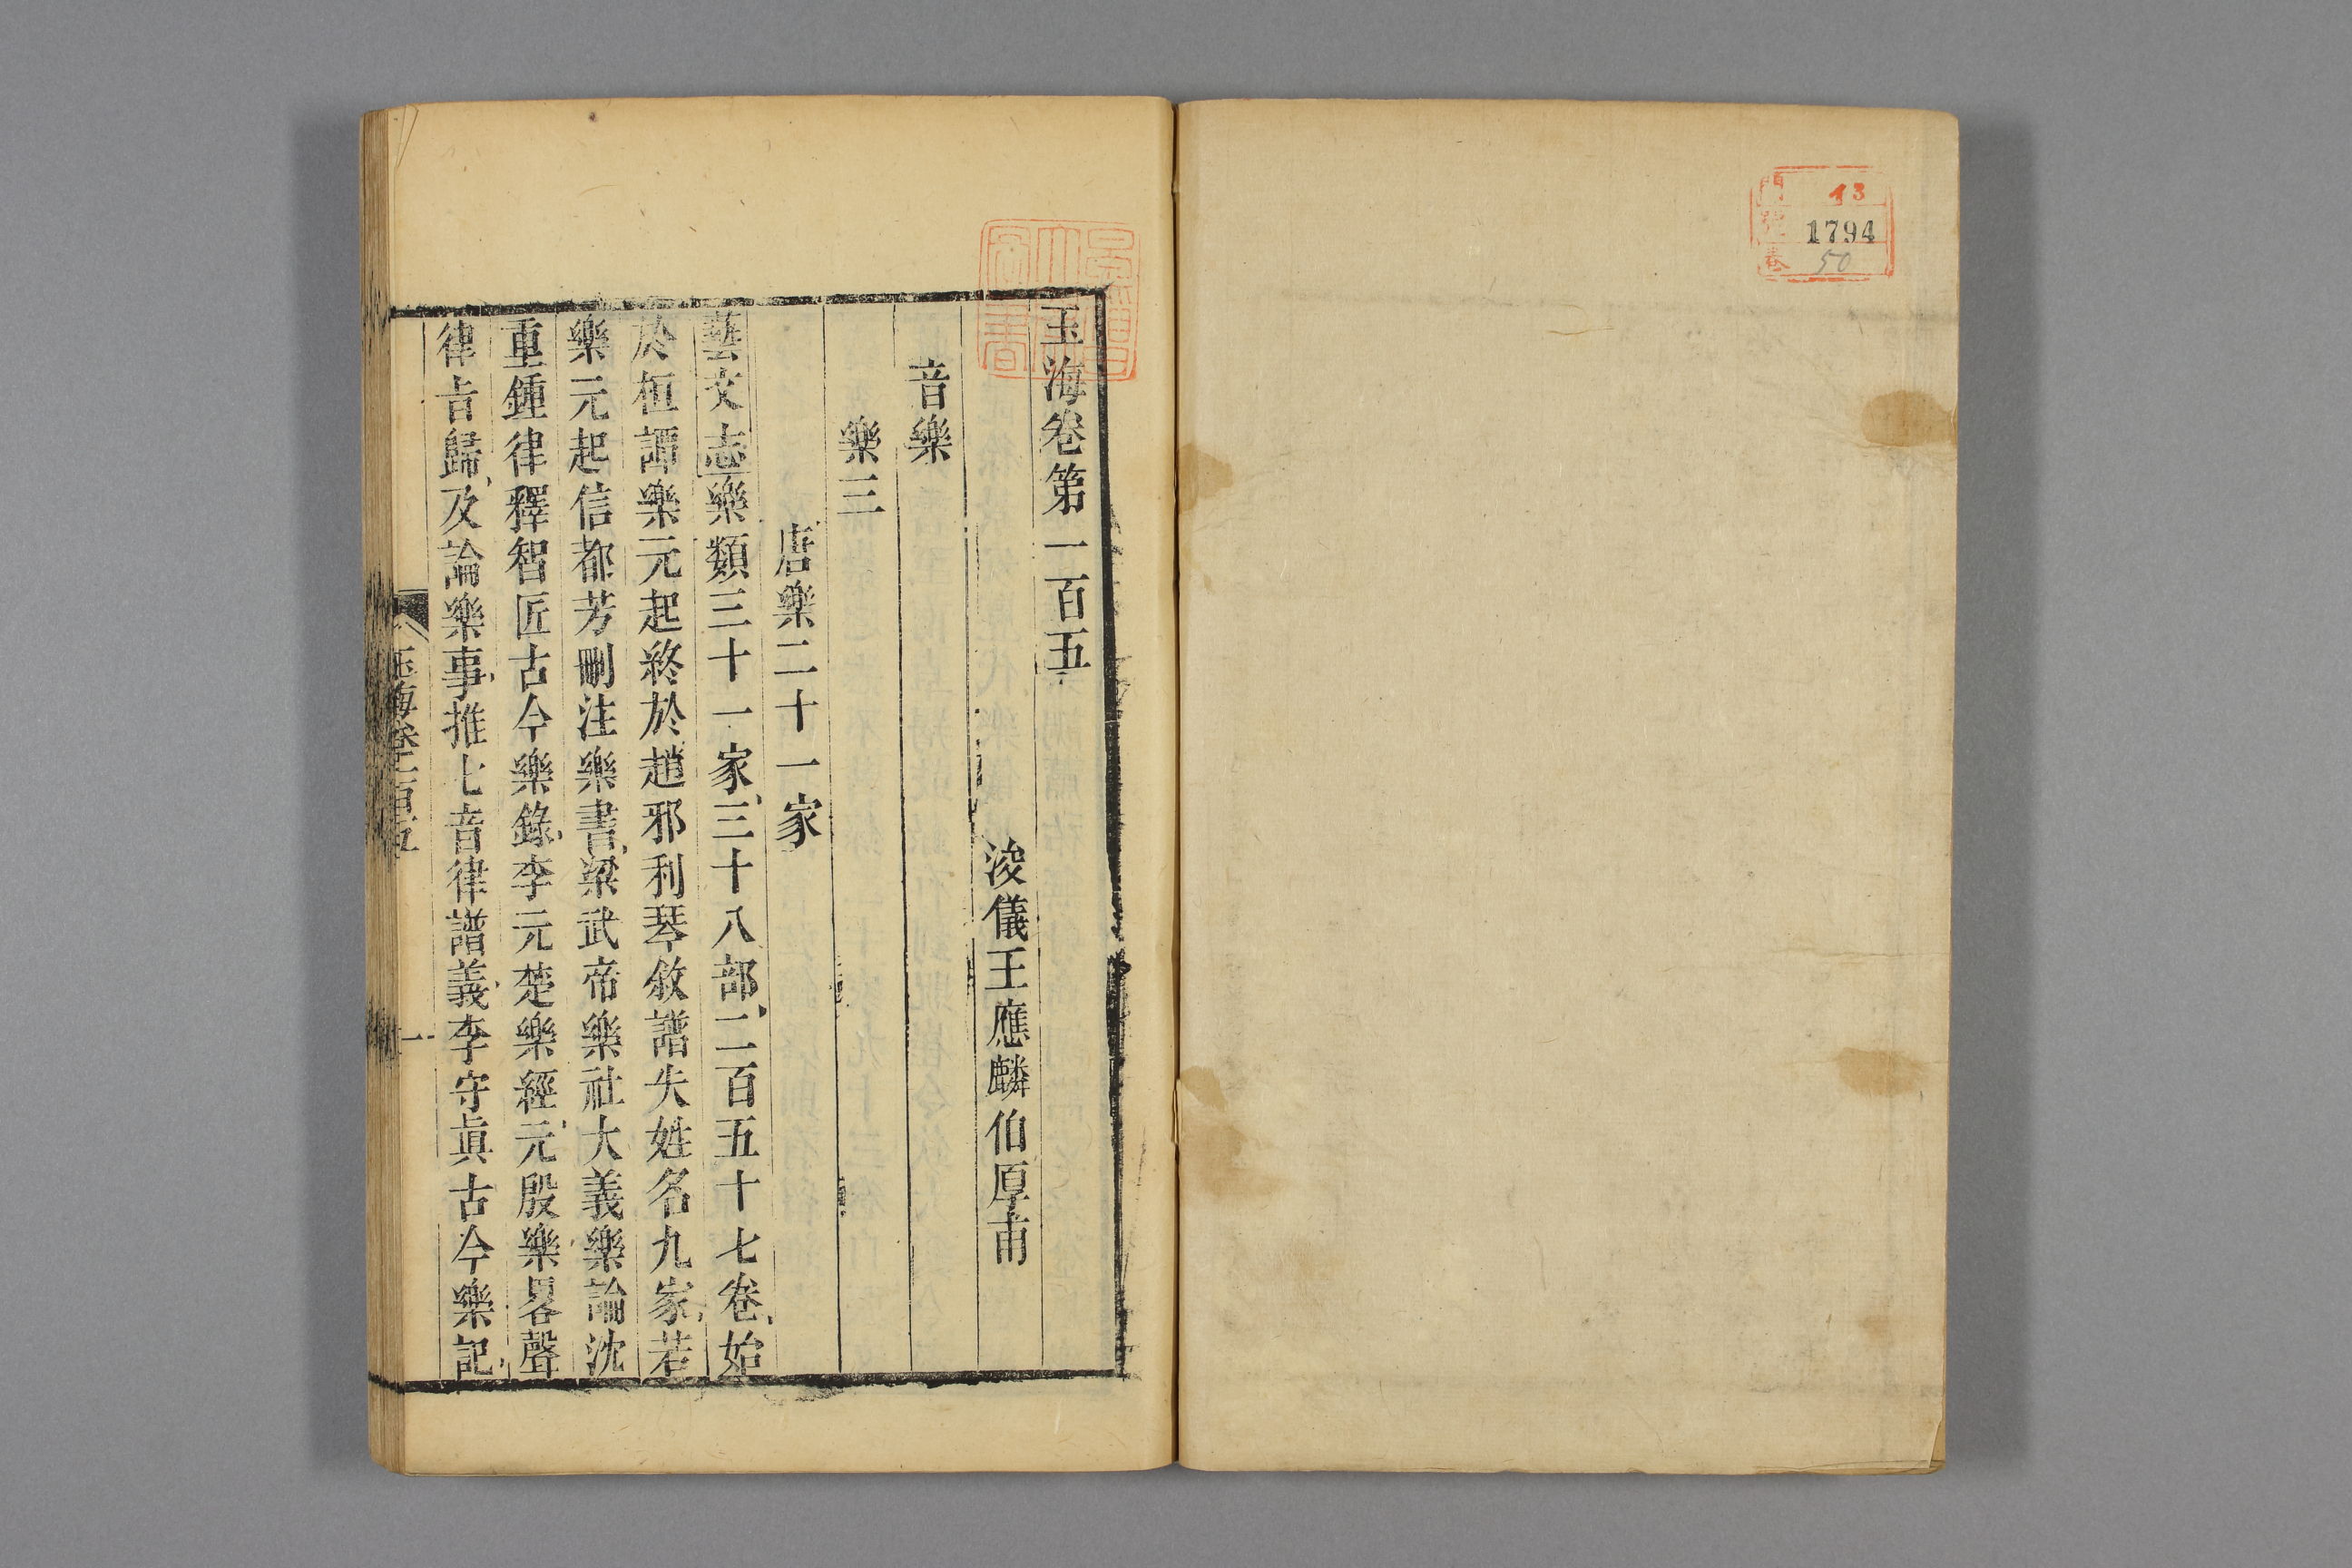 門 13
號 1794
卷 50
玉海卷第一百五
浚儀王應麟伯厚甫
音樂
樂三
唐樂二十一家
藝文志樂類三十一家三十八部二百五十七卷始
於桓譚樂元起終於趙邪利琴敘譜失姓名九家若
樂元起信都芳刪注樂書梁武帝樂社大義樂論沈
重鍾律釋智匠古今樂錄李元楚樂經元殷樂畧聲
律吉歸及論樂事推七音律譜義李守眞古今樂記
玉海卷一百五
一